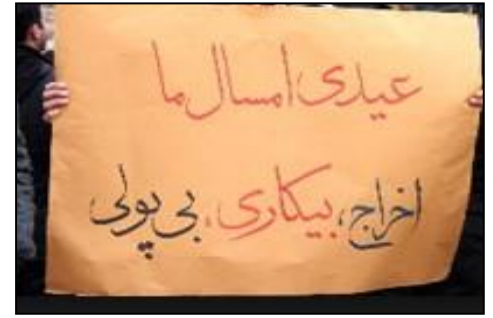 عیدی امسال ما
اخراج، بیکاری، بی پولی